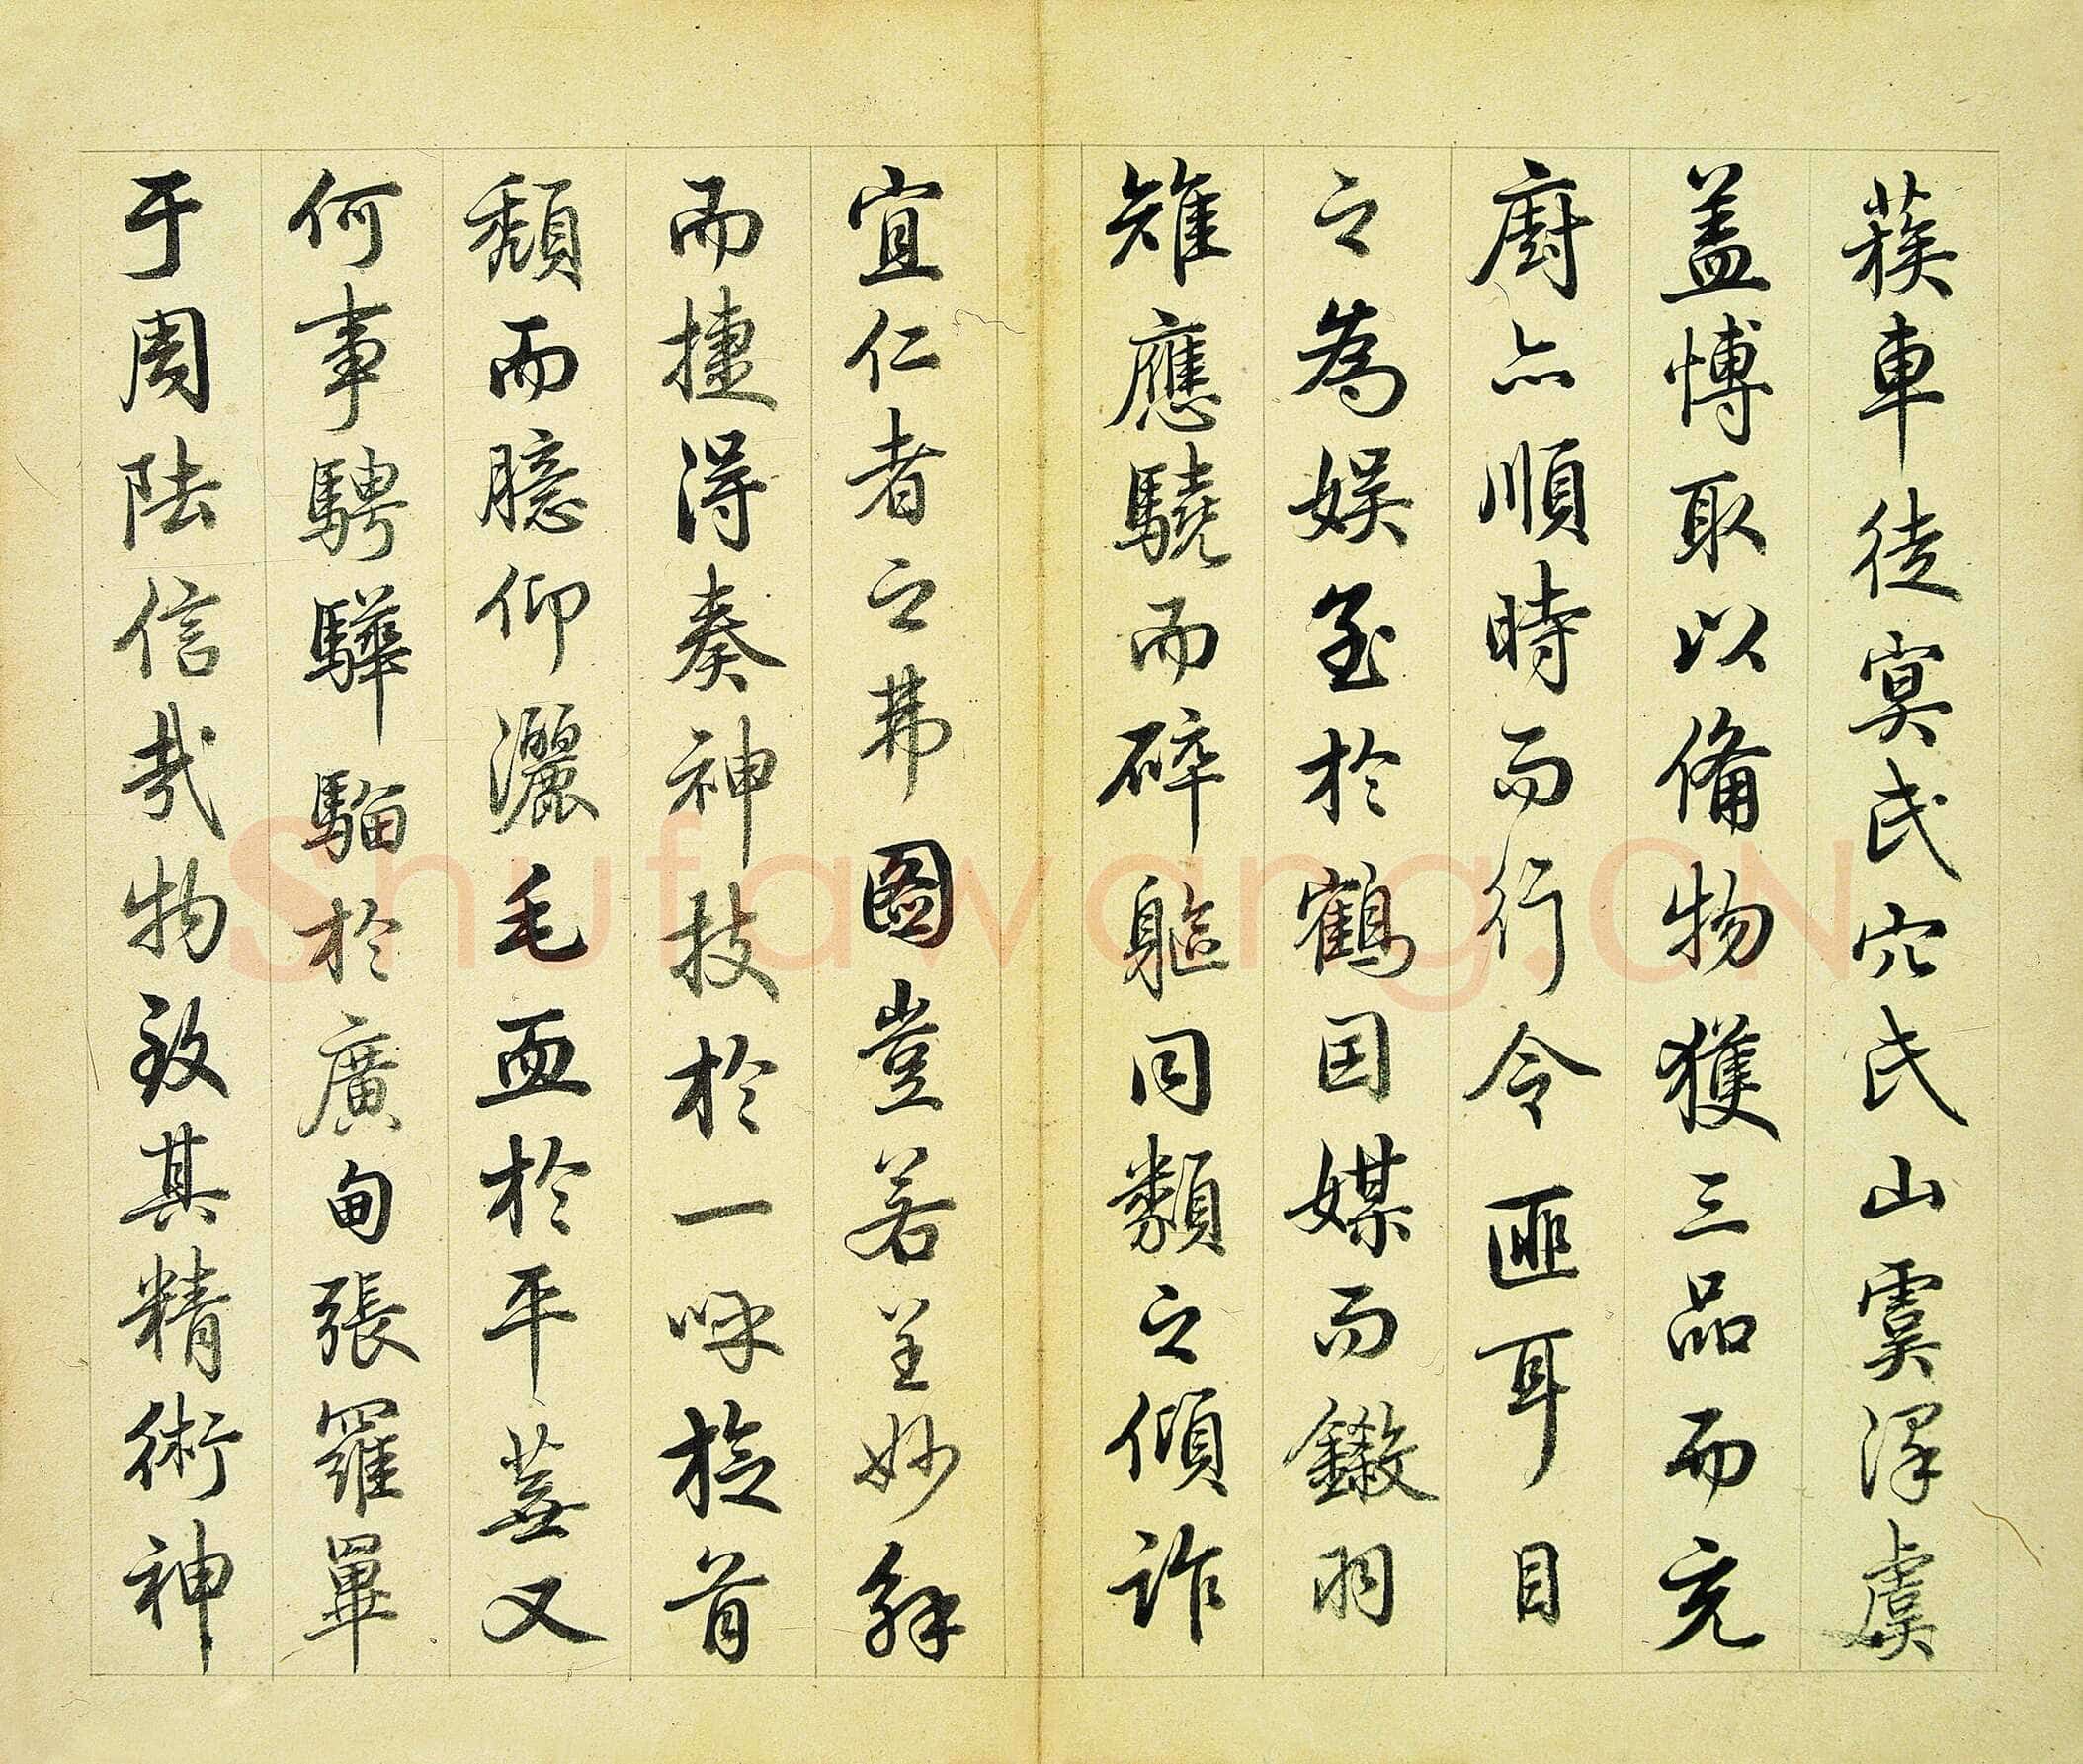 蔟車徒寞氏穴氏山虞澤虞
盖博取以俻物獲三品而充
廚亦順時而行令匪耳目
之為娱至於鶴因媒而鎩羽
雉應驍而碎軀同類之傾詐
宜仁者之弗圖豈若呈妙解
而捷得奏神技於一呼捡首
頹而臆仰灑毛血於平蕪又
何事騁驊騮於廣甸張羅畢
于周陆信哉物致其精術神
Shufawang.CN